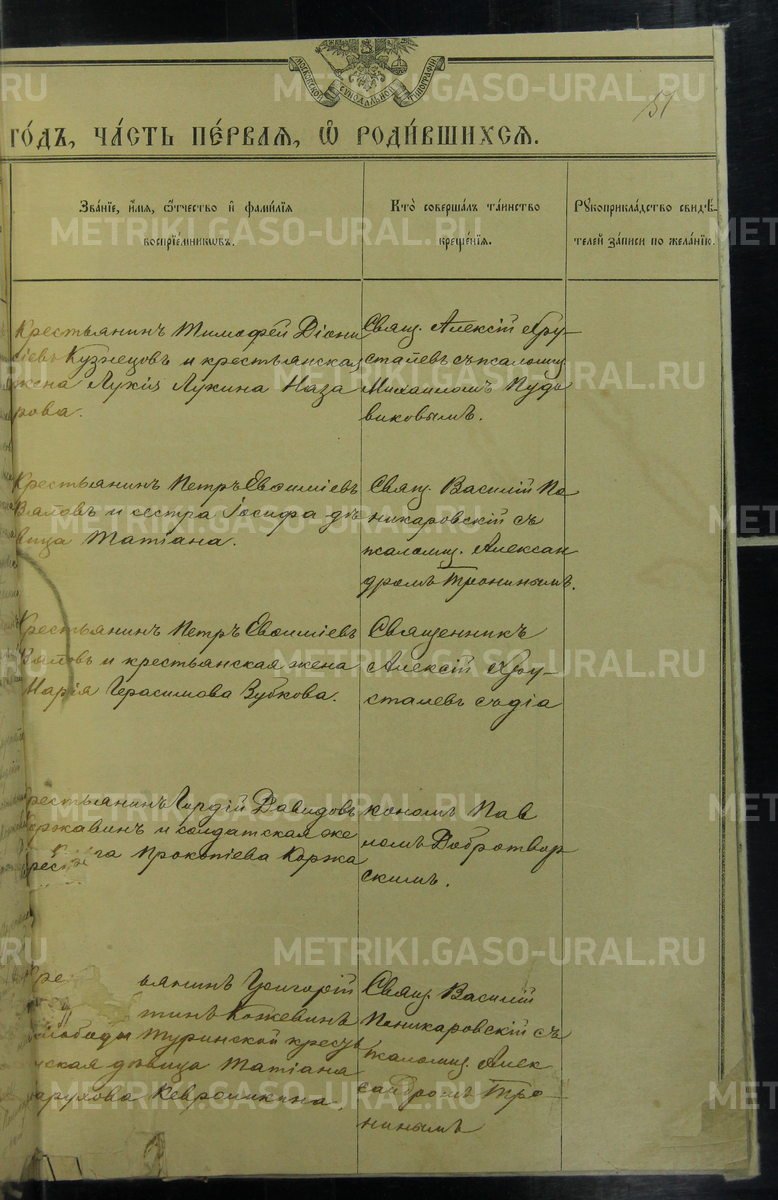 МОСКОВСКОЙ СѴНОДАЛЬНОЙ ТИПОГРАФІИ
151
ГОДЪ, ЧАСТЬ ПЕРВАЯ, Ѡ РОДИВШИХСЯ.
Званіе, имя, отчество и фамилія
воспріемниковъ.
Кто совершалъ таинство
крещенія.
Рукоприкладство свидѣ-
телей записи по желанію.
Крестьянинъ Тимофей Діони
сіевъ Кузнецовъ и крестьянская
жена Лукія Лукина Наза
рова.
Свящ. Алексій Хру-
сталевъ съ псаломщ.
Михаиломъ Пудо
виковымъ.
Крестьянинъ Петръ Евѳиміевъ
и сестра Іосифа дѣ
вица Татіана.
Свящ. Василій По
никаровскій съ
псаломщ. Алексан
дромъ Трониным.
Крестьянинъ Петръ Евѳиміевъ
и крестьянская жена
Марія Герасимова Зубкова.
Священникъ
Алексій Хру-
сталевъ съ діа
Крестьянинъ Гордій Давидовъ
Коржавинъ и солдатская же
га Прокопіева Коржа
кономъ Пав
ломъ Добротвор
скимъ.
ьянинъ Григорій
тинъ Кожевинъ
слободы Туринской крест
ская дѣвица Татіана
Свящ. Василій
Поникаровскій съ
псаломщ. Алек
сандромъ Тро-
нинымъ
METRIKI.GASO-URAL.RU